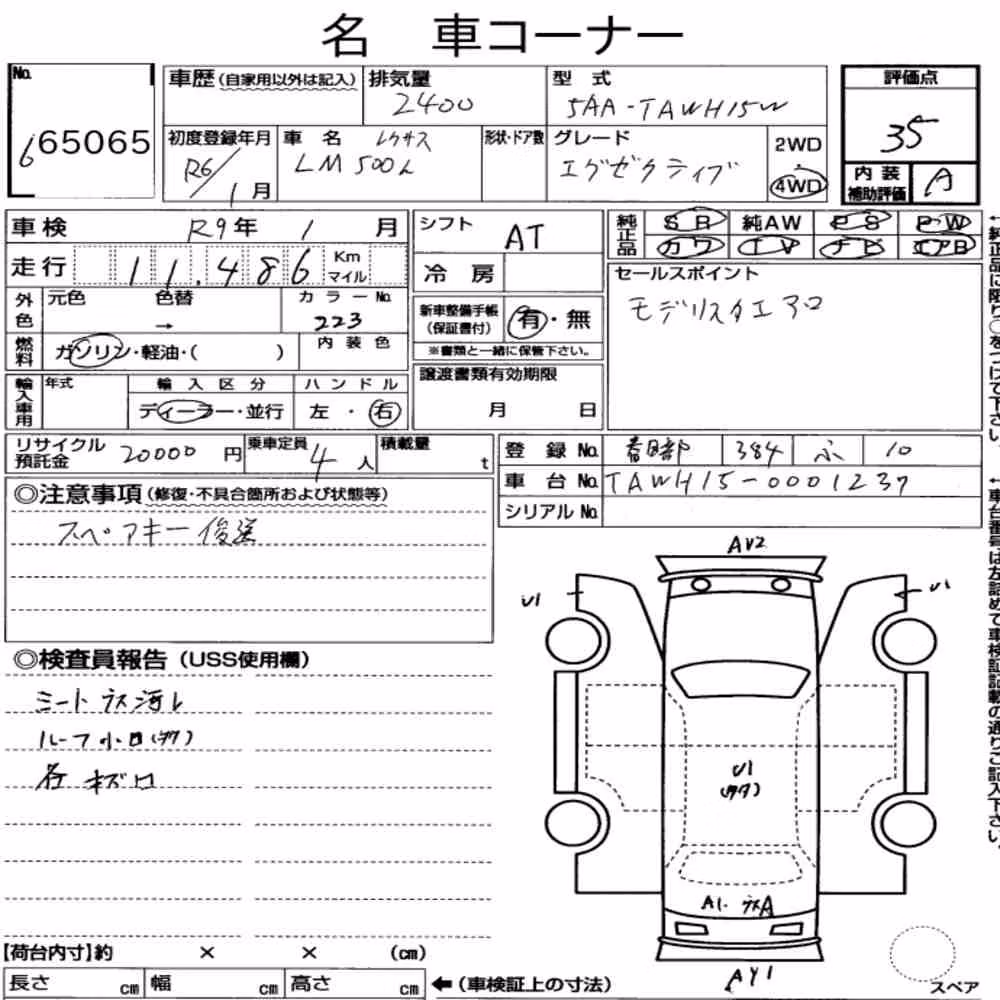 名 車コーナー
No.
665065
車歴(自家用以外は記入)
排気量
2400
型 式
5AA-TAWH15W
初度登録年月
R6/1月
車 名
レクサス
LM500h
形状・ドア数
グレード
エグゼクティブ
2WD
・
4WD
評価点
35
内 装
補助評価
A
車検
R9年 1 月
走行
11,486
Km
マイル
外色
元色
色替
→
カラーNo.
223
燃料
ガソリン・軽油・( )
内装色
輸入車用
年式
輸入区分
ディーラー・並行
ハンドル
左・右
シフト
AT
冷 房
新車整備手帳
(保証書付)
有・無
※書類と一緒に保管下さい。
譲渡書類有効期限
月 日
純正品
SR
純AW
PS
PW
カワ
TV
ナビ
エアB
セールスポイント
モデリスタエアロ
リサイクル
預託金
20000 円
乗車定員
4 人
積載量
t
登 録 No.
春日部 384 ふ 10
車 台 No.
TAWH15-0001237
シリアル No.
◎注意事項(修復・不具合箇所および状態等)
スペアキー後送
◎検査員報告(USS使用欄)
ルーフ小
各キズ
AV2
U1
U1
U1
A1
AY1
スペア
【荷台内寸】約 × × (cm)
長さ cm
幅 cm
高さ cm
←(車検証上の寸法)
←純正品に限り○をつけて下さい。
←車台番号は左詰めで車検証記載の通りご記入下さい。